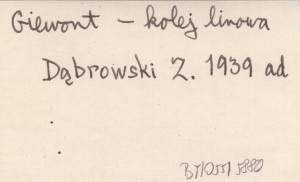 Giewont - kolej linowa
Dąbrowski Z. 1939 ad
.
.